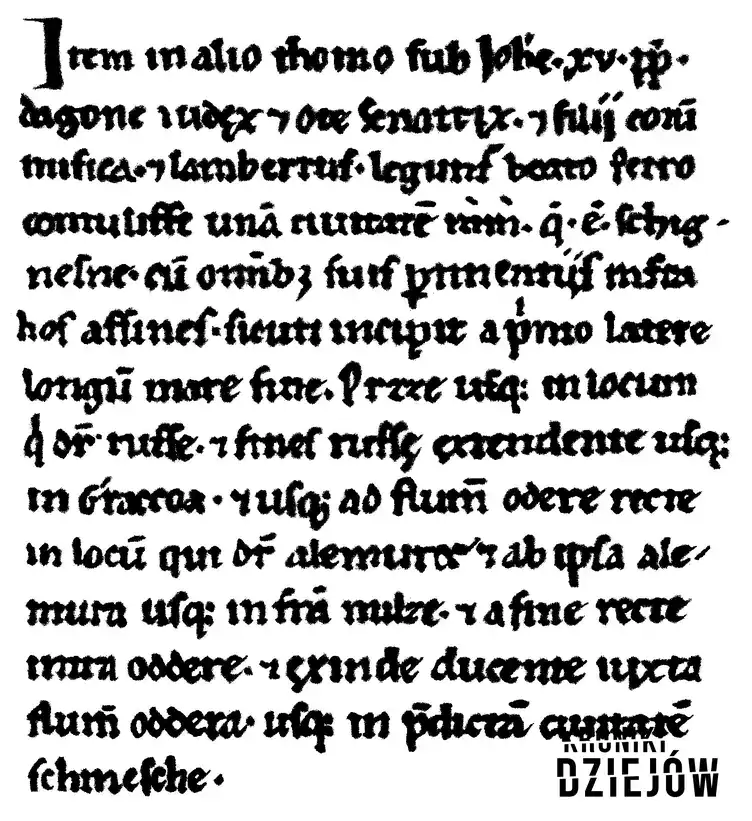 Item in alio thomo sub Joħe · xv · pp̄ ·
dagone iudęx ⁊ ote senatrix · ⁊ filij eorū
misica · ⁊ lambertus · legunt̄ beato petro
contulisse unā ciuitatē in īnt̄ · q̄ · ē · schig-
nesne · cū omīb; suis ꝑtinentijs infra
hos affines · sicuti incipit a pͥmo latere
longū mare fine · Pruzze usq; in locum
q dr̄ russe · ⁊ fines russę extendente usq;
in Craccoa · ⁊ usq; ad flum̄ odere recte
in locū qui dr̄ alemura · ⁊ ab ipsa ale-
mura usq; in trā milze · ⁊ a fine recte
intra oddere · ⁊ exinde ducente iuxta
flum̄ oddera · usq; in p̄dictā ciuitatē
schinesche ·
KRONIKI
DZIEJÓW